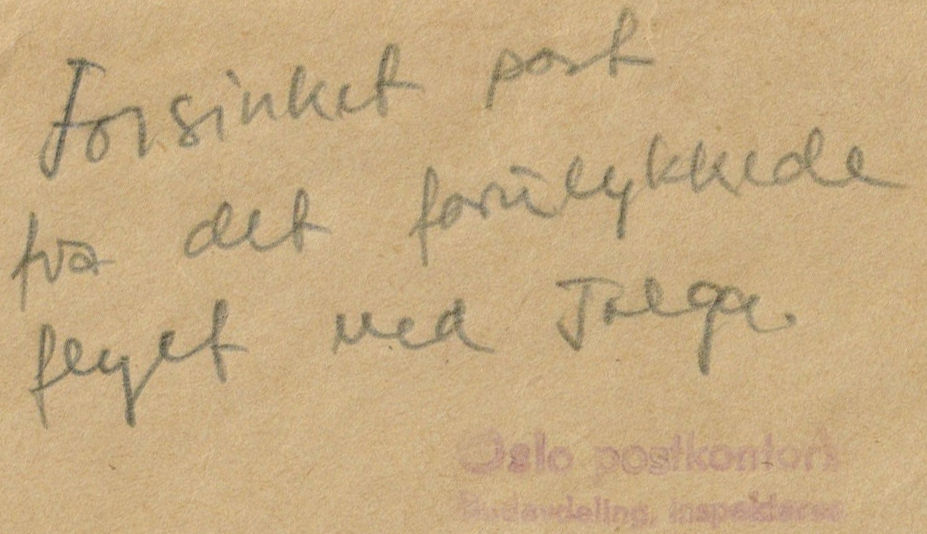 Forsinket post
fra det forulykkede
flyet ved Tolga.
Oslo postkontor
Budavdeling, inspektøren